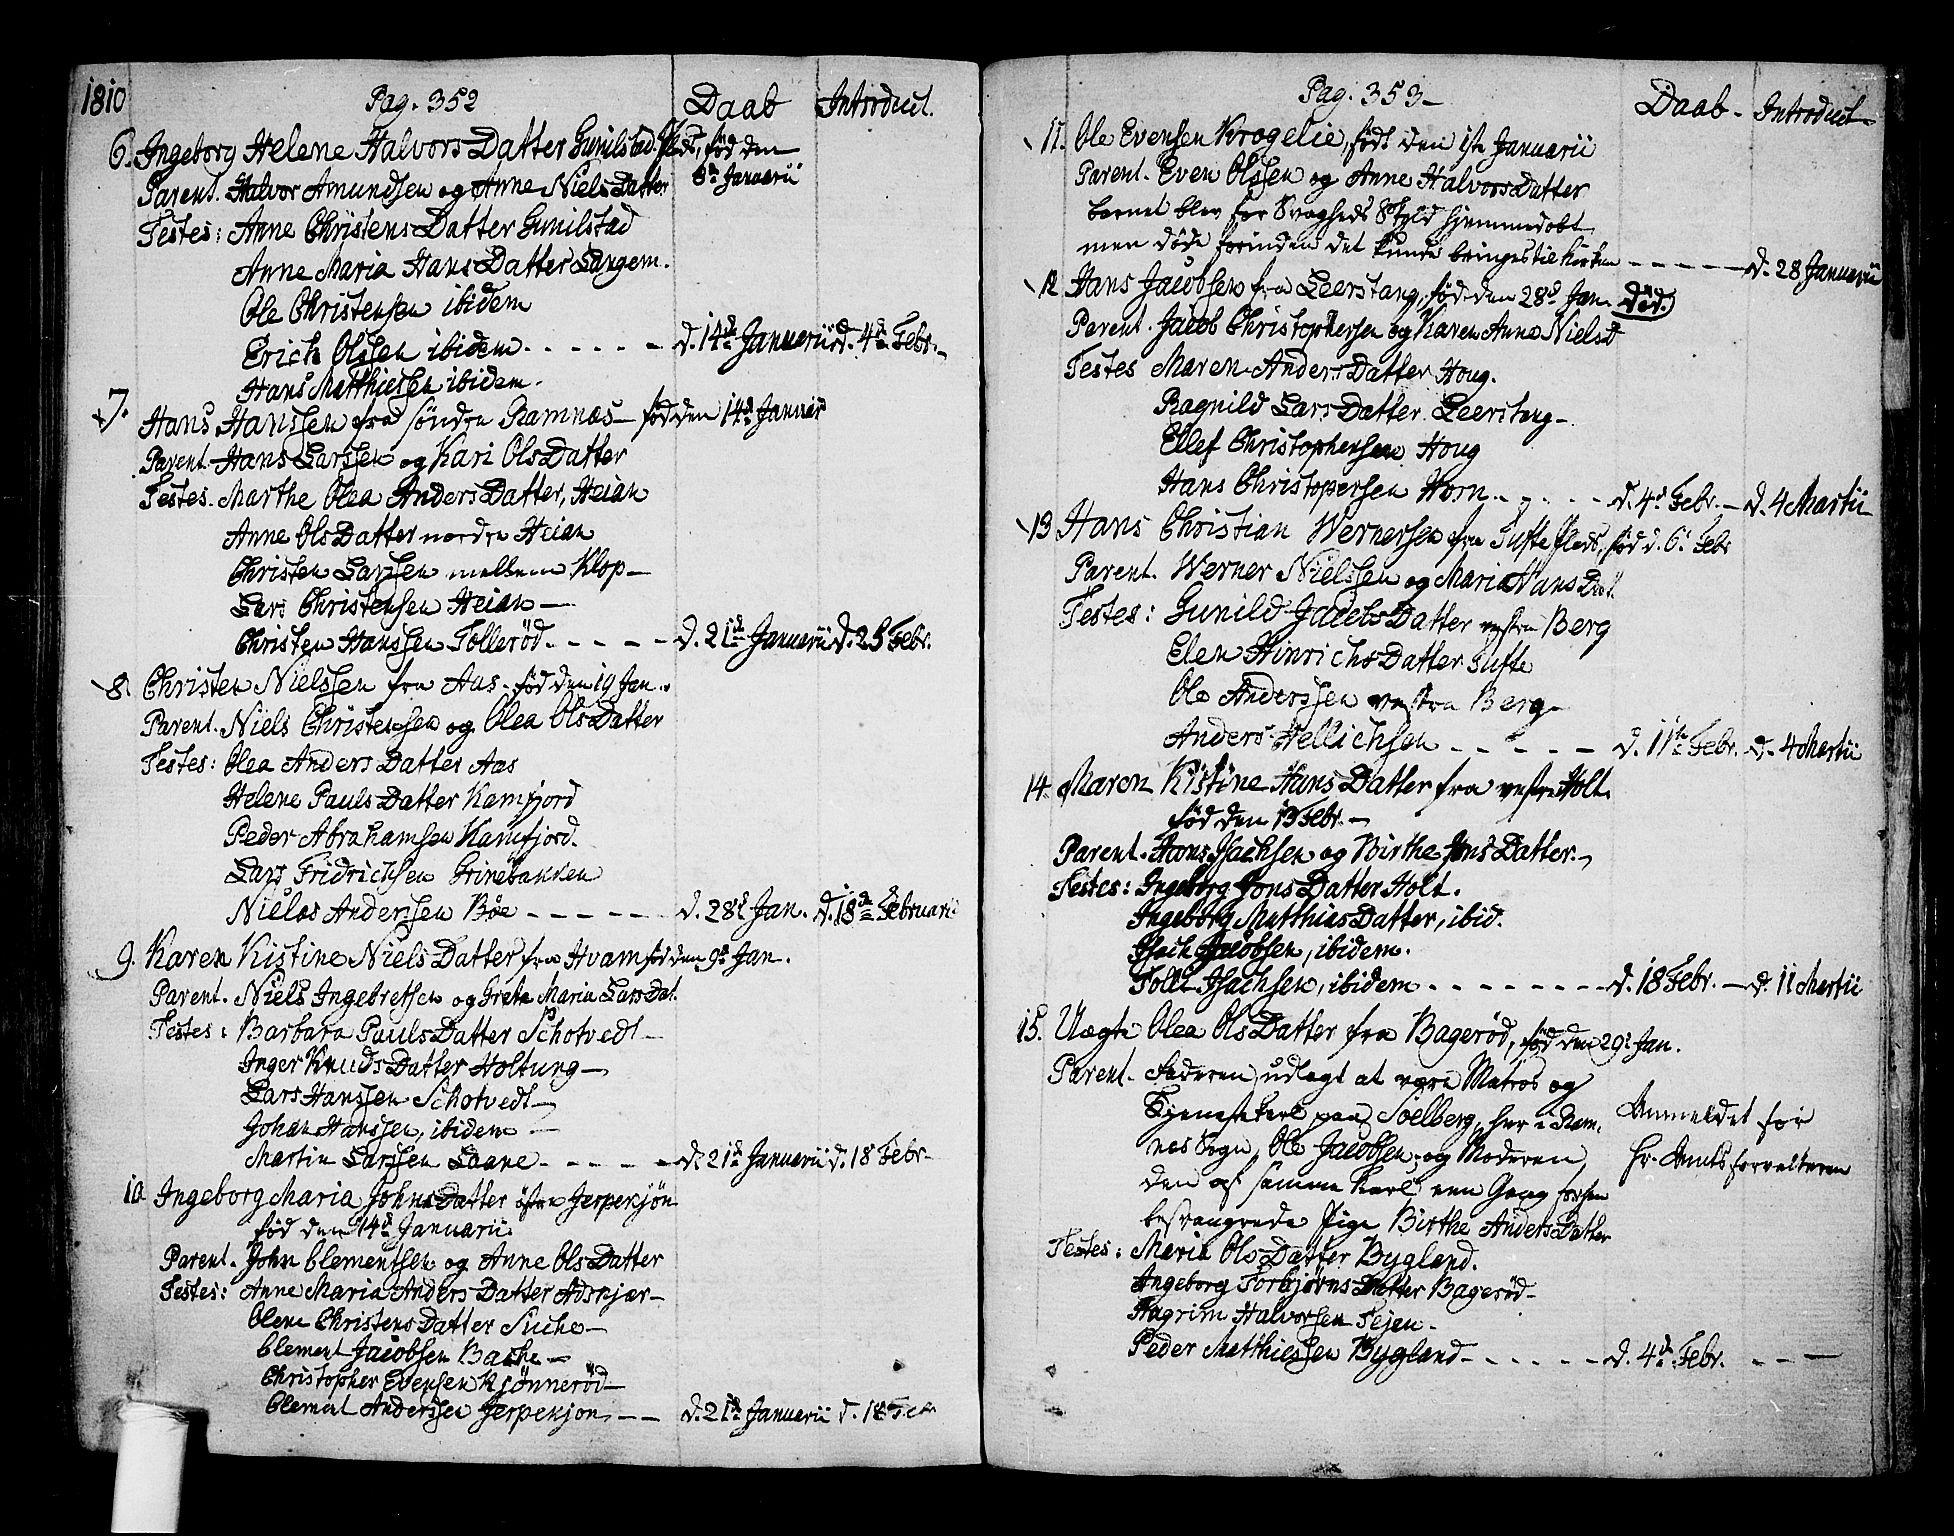 1810
Pag. 352 Daab Introduct.
6. Ingeborg Helene Halvors Datter Gunilstad Plads, fød den
8de Januarii
Parent. Halvor Amundsen og Anne Niels Datter
Testes: Anne Christens Datter Gunilstad
Anne Maria Hans Datter Langem.
Ole Christensen ibidem
Erich Olssen ibidem d. 14de Januarii d. 4de Febr.
Hans Matthiesen ibidem.
7. Hans Hanssen fra søndre Ramnæs fød den 14de Januar
Parent. Hans Larssen og Kari Ols Datter
Testes. Marthe Olea Anders Datter, Heian
Anne Ols Datter nordre Heian
Christen Larssen mellem Klop
Lars Christensen Heian
Christen Hanssen Tollerød d. 21de Januarii d. 25 Febr.
8. Christen Nielssen fra Aas fød den 19 Jan.
Parent. Niels Christensen og Olea Ols Datter
Testes: Olea Anders Datter Aas
Helene Pauls Datter Kamfjord
Peder Abrahamsen Kamfjord.
Lars Fridrichsen Grinebakken
Nielas Anderssen Bøe d. 28d Jan. d. 18de Februarii
9. Karen Kistine Niels Datter fra Hvam fød den 9de Jan.
Parent. Niels Ingebretsen og Grete Maria Lars Dat.
Testes: Barbara Pauls Datter Schotvedt
Inger Knuds Datter Holtung
Lars Hanssen Schotvedt
Johan Hanssen, ibidem
Martin Larssen Laane d. 21de Januarii d. 18 Febr.
10 Ingeborg Maria Johns Datter østre Jerpekjøn
fød den 14de Januarii.
Parent. John Clementsen og Anne Ols Datter
Testes: Anne Maria Anders Datter Adskjær
Olene Christens Datter Suche
Clement Jacobsen Bache
Christopher Evensen Kjønnerød
Clement Anderssen Jerpekjøn d. 21de Januarii d. 18 Febr
Pag. 353 Daab Introduct
11. Ole Evensen Krogelie, født den 1ste Januarii
Parent. Even Olssen og Anne Halvors Datter
barnet blev for Svagheds Skyld hjemmedøbt
men døde forinden det kunde bringes til Kirken d. 28 Januarii
12 Hans Jacobsen fra Leerstang, fød den 28d Jan. død.
Parent. Jacob Christophersen og Karen Anne Nielsd
Testes Maren Anders Datter Houg.
Ragnild Lars Datter Leerstang
Ellef Christophersen Houg
Hans Christopersen Horn d. 4d Febr. d. 4 Martii
13 Hans Christian Wernersen fra Tufte Plads, fød d. 6d Febr
Parent. Werner Nielssen og Maria Hans Dat.
Testes: Gunild Jacobs Datter vestre Berg
Elen Hinrichs Datter Tufte
Ole Anderssen vestre Berg
Anders Hellichsen d. 11te Febr. d. 4 Martii
14. Maren Kistine Hans Datter fra vestre Holt.
fød den 13 Febr.
Parent. Hans Isachsen og Birthe Jons Datter.
Testes: Ingeborg Jons Datter Holt.
Ingeborg Matthias Datter, ibid.
Isach Jacobsen, ibidem.
Tolli Isachsen, ibidem d. 18 Febr. d. 11 Martii
15. Uægte Olea Ols Datter fra Bagerød, fød den 29d Jan.
Parent. Faderen, udlagt at være Matros og
Tjenestekarl paa Soelberg, her i Ram- Anmeldet for
næs Sogn, Ole Jacobsen, og Moderen Hr. Amtsforvalteren
den af samme Karl een Gang forhen
besvangrede Pige Birthe Anders Datter
Testes: Maria Ols Datter Bygland.
Ingeborg Torbjørns Datter Bagerød
Hagrim Halvorsen Fejen.
Peder Matthiessen Bygland d. 4de Febr.